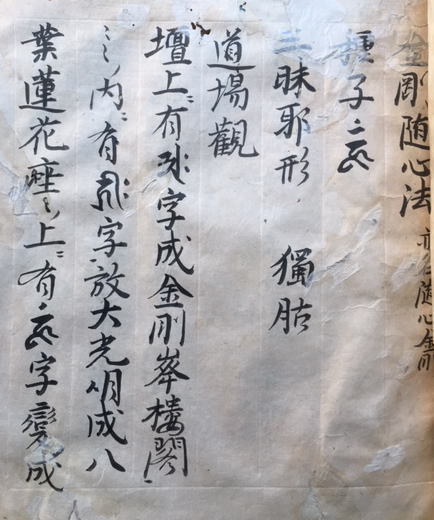 金剛随心法 亦名随心金剛
種子
三昧耶形 獨胋
道場觀
壇上ニ有字成金剛峯樓閣
々々内ニ有字放大光明成八
葉蓮花座々上ニ有字變成